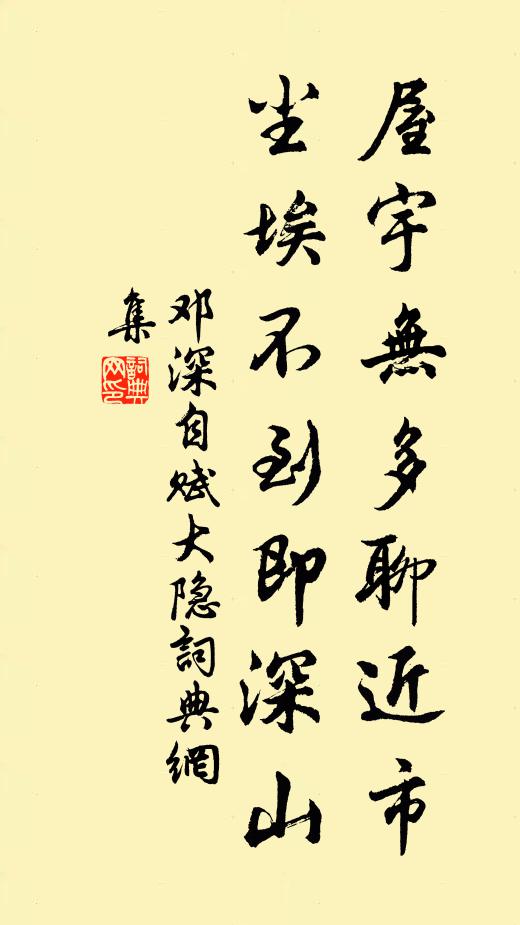 屋宇無多聊近市
尘埃不到即深山
邓深自赋大隐詞典網
集
詞典
网印